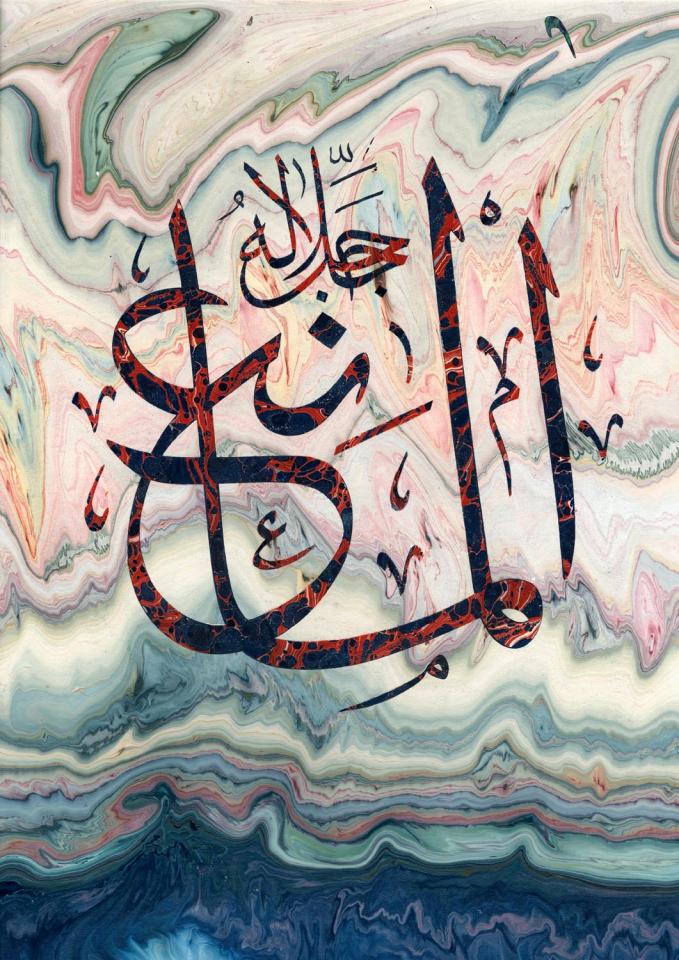 المانع
جل جلاله